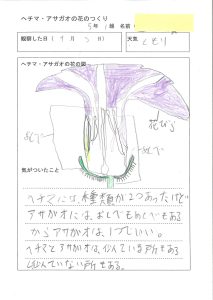 ヘチマ・アサガオの花のつくり
5年 1組 名前
観察した日(9月5日)
天気
くもり
ヘチマ・アサガオの花の図
花びら
めしべ
おしべ
気がついたこと
ヘチマには、種類が2つあったけど
アサガオには、おしべもめしべもある
からアサガオは、1つでいい。
ヘチマとアサガオは、似ている所もある
し似ていない所もある。